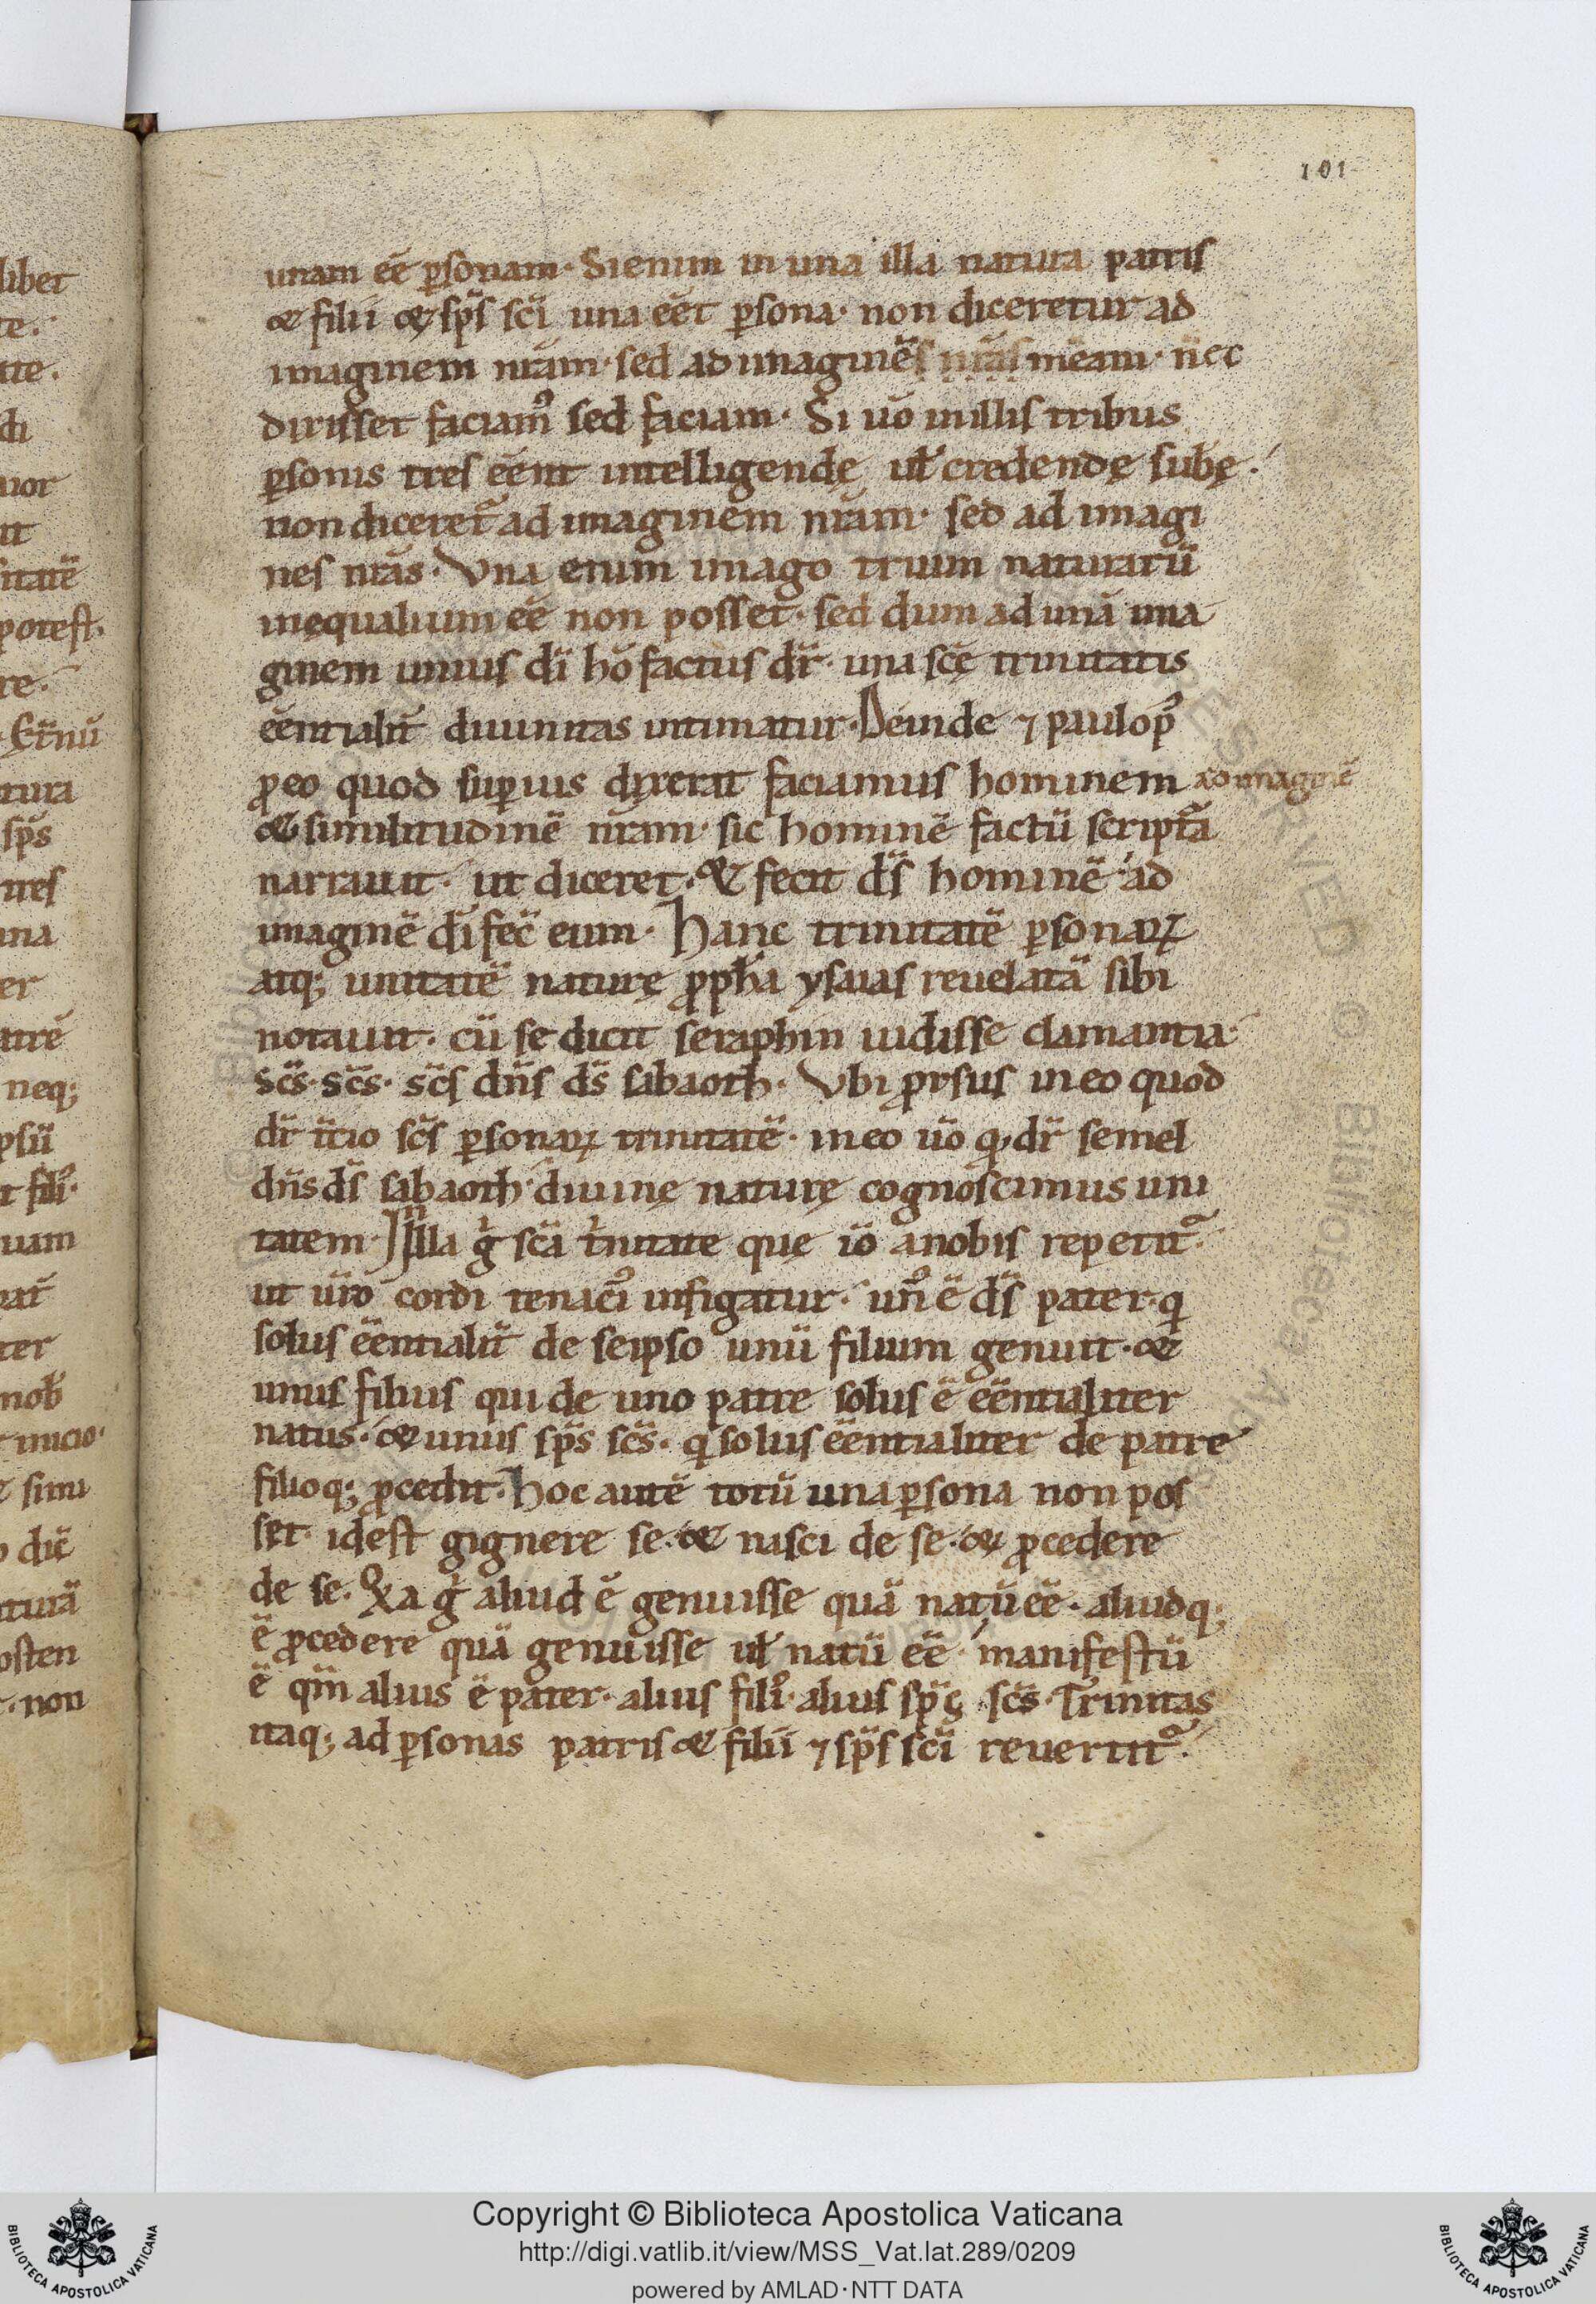 101
unam eē ꝑsonam· Si enim in una illa natura patris
& filii & sp̄s sc̄i una eēt ꝑsona· non diceretur ad
imaginem nr̄am· sed ad imaginē meam· nec
dixisset faciamꝰ sed faciam· Si ūo in illis tribus
ꝑsonis tres eēnt intelligendę uł credendę subę·
non diceret᷑ ad imaginem nr̄am· sed ad imagi
nes nr̄as· Vna enim imago trium naturarū
inęqualium eē non posset· sed dum ad unā ima
ginem unius dī hō factus dr̄· una scę trinitatis
eēntialit̄ diuinitas intimatur· Deinde ⁊ paulo pꝰ
ꝓ eo quod superius dixerat faciamus hominem ad imaginē
& similitudinē nr̄am· sic hominē factū script᷑a
narrauit· ut diceret· & fecit ds̄ hominē· ad
imaginē dī fec̄ eum· Hanc trinitatē ꝑsonaꝝ
atq; unitatē naturę ꝓph̄a ysaias reuelatā sibi
notauit· cū se dicit seraphin uidisse clamantia·
Sc̄s· Sc̄s· sc̄s dn̄s ds̄ sabaoth· Vbi ꝓrsus in eo quod
dr̄ t̄cio sc̄s ꝑsonaꝝ trinitatē· in eo ūo qđ dr̄ semel
dn̄s ds̄ sabaoth· diuinę naturę cognoscimus uni
tatem· In illa g̊ sc̄a t̊nitate que iō a nobis repetit᷑·
ut ūro cordi tenaciꝰ infigatur· unꝰ ē ds̄ pater· q̇
solus eēntialit̄ de seipso unū filium genuit· &
unus filius qui de uno patre solus ē eēntialiter
natus· & unus sp̄s sc̄s· q̇ solus eēntialiter de patre
filioq; ꝓcedit· Hoc autē totū una ꝑsona non pos
set· idest gignere se· & nasci de se· & ꝓcedere
de se· Q̇a g̊ aliud ē genuisse quā natū eē· aliudq;
ē ꝓcedere quā genuisse uł natū eē· manifestū
ē qm̄ alius ē pater· alius filiꝰ· alius sp̄s sc̄s· Trinitas
itaq; ad ꝑsonas patris & filii ⁊ sp̄s sc̄i reuertit᷑·
Copyright © Biblioteca Apostolica Vaticana
http://digi.vatlib.it/view/MSS_Vat.lat.289/0209
powered by AMLAD·NTT DATA
BIBLIOTECA APOSTOLICA VATICANA
BIBLIOTECA APOSTOLICA VATICANA